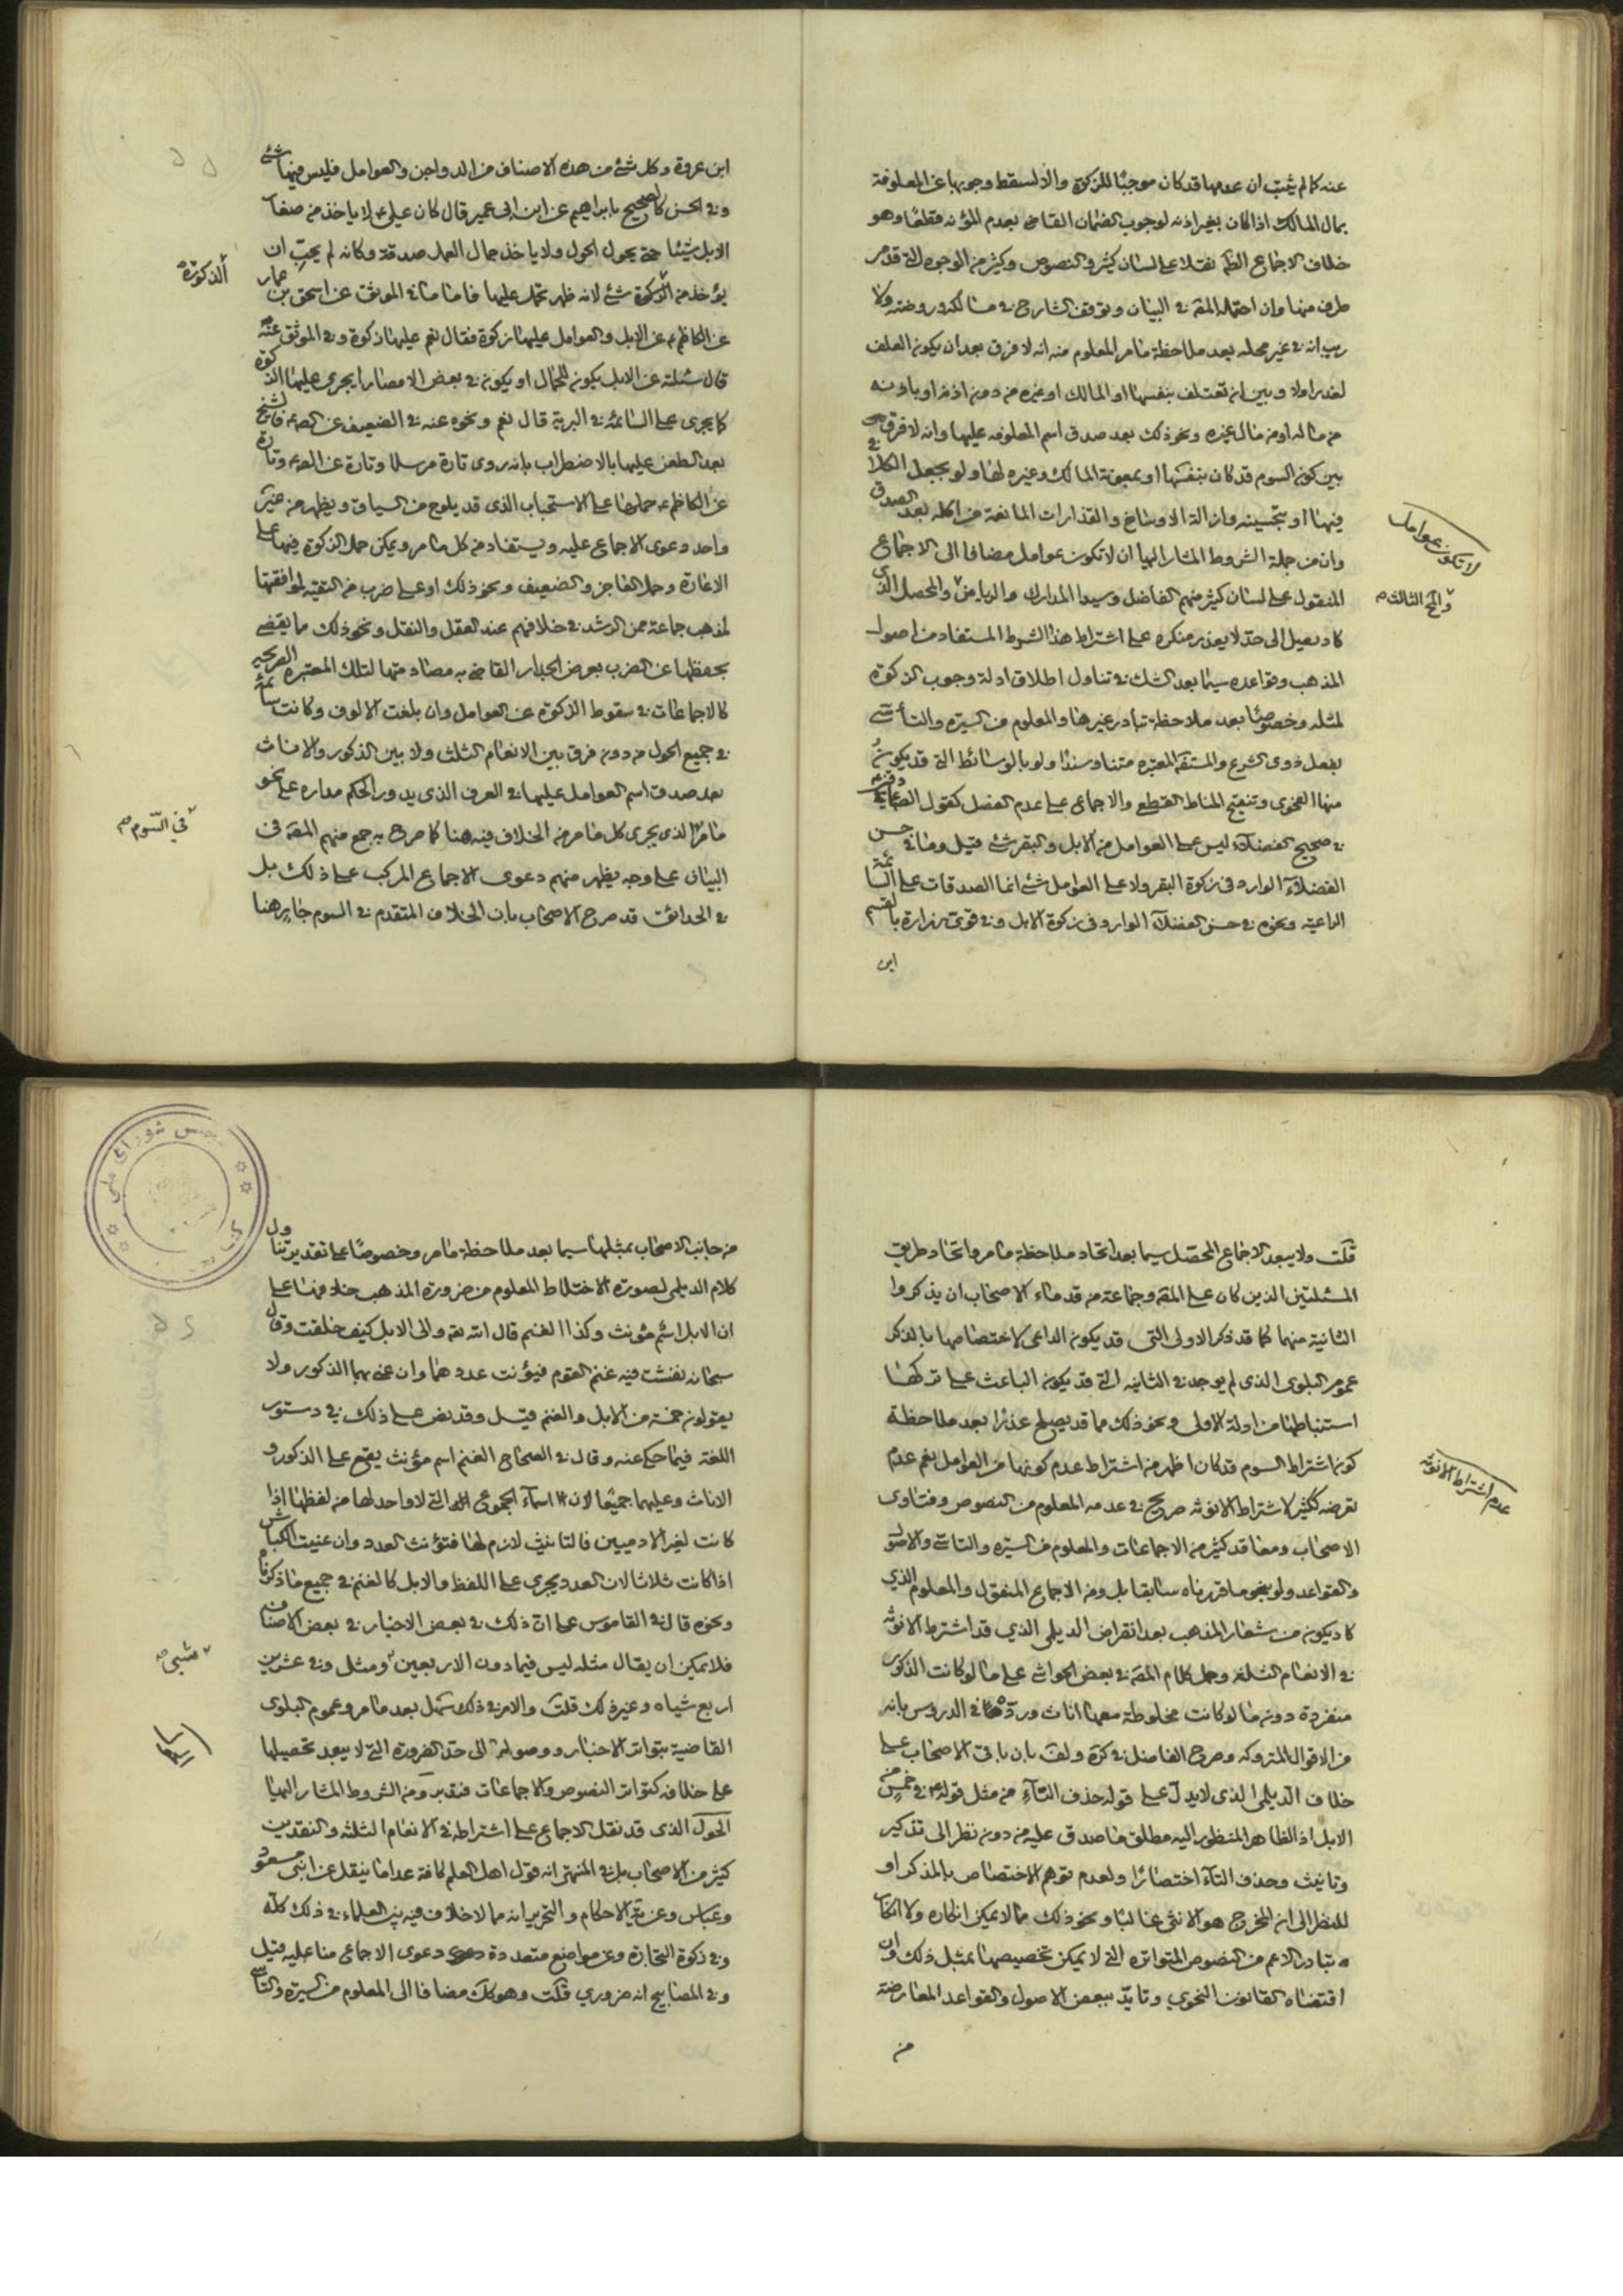 عنه كما لم يثبت ان عدمها قد كان موجبًا للزكوة والا لسقط وجوبها عن المعلوفة
بمال المالك اذا كان بغير اذنه لوجوب الضمان القاضى بعدم المؤنه قطعًا وهو
خلاف الاجماع الظ نقلا على لسان كثير والنصوص وكثير من الوجوه التى قد مر
طرف منها وان احتمله المقه فى البيان وتوقف الشارح فى مسالكه وروضته ولا
ريب انه فى غير محله بعد ملاحظة ما مر المعلوم منه انه لا فرق بعد ان يكون العلف
لعذر اولا وبين ان تعتلف بنفسها او المالك او غيره من دون اذنه او باذنه
من ماله او من مال غيره ونحو ذلك بعد صدق اسم المعلوفه عليها وانه لا فرق
بين كون السوم قد كان بنفسها او بمعونة المالك وغيره لها ولو بجعل الكلأ فى
فيها او بتحسينه وازالة الاوساخ والقذارات المانعة من اكله بعد الصدق
وان من جملة الشروط المشار اليها ان لا تكون عوامل مضافا الى الاجماع
لا تكون عوامل
المنقول على لسان كثير منهم الفاضل وسيدا المدارك والرياض والمحصل الذى
والمح الثالث
كاد يصل الى حد لا يعذر منكره على اشتراط هذا الشرط المستفاد من اصول
المذهب وقواعده سيما بعد الشك فى تناول اطلاق ادلة وجوب الزكوة
لمثله وخصوصًا بعد ملاحظة تبادر غيرها والمعلوم من السيره والتأسى
بفعل ذوى الشرع والمستفـ المعتبره متنا وسندا ولو بالوسائط التى قد يكون
منها الفحوى وتنقيح المناط القطعى والاجماع على عدم الفصل كقول الصادقين
فى صحيح الفضلاء ليس على العوامل من الابل والبقر شئ قيل وما فى حسن
الفضلاء الوارد فى زكوة البقر ولا على العوامل شئ انما الصدقات على السائمة
الراعيه ونحوه فى حسن الفضلاء الوارد فى زكوة الابل وفى قوى زرارة بالقسم
ابن
ابن عروة وكل شئ من هذه الاصناف من الدواجن والعوامل فليس فيها شئ
وفى الحسن كالصحيح بابراهيم عن ابن ابى عمير قال كان على ع لا ياخذ من صغار
الابل شيئا حتى يحول الحول ولا ياخذ جمال العمل صدقة وكانه لم يحب ان
يؤخذ من الذكورة شئ لانه ظهر يحمل عليها فاما ما فى الموثق عن اسحق بن عمار
الذكورة
عن الكاظم ع عن الابل والعوامل عليها زكوة فقال نعم عليها زكوة وفى الموثق عنه
قال سئلته عن الابل يكون للجمال او يكون فى بعض الامصار ايجرى عليها الزكوة
كما يجرى على السائمة فى البرية قال نعم ونحوه عنه فى الضعيف عن الصه ع فالشيخ
بعد الطعن عليها بالاضطراب بانه روى تارة مرسلا وتارة عن الصه ع وتارة
عن الكاظم ع حملها على الاستحباب الذى قد يلوح من السياق ويظهر من غير
واحد دعوى الاجماع عليه ويستفاد من كل ما مر ويمكن حمل الزكوة فيها على
الاعارة وحمل العاجز والضعيف ونحو ذلك او على ضرب من التقيه لموافقتها
لمذهب جماعة ممن الرشد فى خلافهم عند العقل والنقل ونحو ذلك مما يقضى
بحفظها عن الضرب بعرض الجدار القاضى به مصادمتها لتلك المعتبره الصريحه
كالاجماعات فى سقوط الزكوة عن العوامل وان بلغت الالوف وكانت سائمة
فى جميع الحول من دون فرق بين الانعام الثلث ولا بين الذكور والاناث
بعد صدق اسم العوامل عليها فى العرف الذى يدور الحكم مداره على نحو
ما مر الذى يجرى كل ما مر من الخلاف فيه هنا كما صرح به جمع منهم المقه فى
فى السوم
البيان على وجه يظهر منهم دعوى الاجماع المركب على ذلك بل
فى الحدائق قد صرح الاصحاب بان الخلاف المتقدم فى السوم جار هنا
قلت ولا يبعد الاجماع المحصل سيما بعد اتحاد ملاحظة ما مر واتحاد طريق
المسئلتين الذين كان على المقه وجماعة من قدماء الاصحاب ان يذكروا
الثانية منهما كما قد ذكر الاولى التى قد يكون الداعى لاختصاصها بالذكر
عموم البلوى الذى لم يوجد فى الثانيه التى قد يكون الباعث على تركها
استنباطها من ادلة الاولى ونحو ذلك مما قد يصلح عذرا بعد ملاحظة
كون اشتراط السوم قد كان اظهر من اشتراط عدم كونها من العوامل نعم عدم
عدم اشتراط الانوثه
تعرضه ككثير لاشتراط الانوثه صريح فى عدمه المعلوم من النصوص وفتاوى
الاصحاب ومعاقد كثير من الاجماعات والمعلوم من السيره والتاسى والاصول
والقواعد ولو بنحو ما قررناه سابقا بل ومن الاجماع المنقول والمعلوم الذي
كاد يكون من شعار المذهب بعد انقراض الديلمى الذي قد اشترط الانوثه
فى الانعام الثلثه وحمل كلام المقه فى بعض الحواشى على ما لو كانت الذكور
منفردة دون ما لو كانت مخلوطة معها اناث ورده فى الدروس بانه
من الاقوال المتروكه وصرح الفاضل فى كره ولف بان باقى الاصحاب على
خلاف الديلمى الذى لا يدل على قوله حذف التاء من مثل قوله ع فى خمس من
الابل اذ الظاهر المنظور اليه مطلق ما صدق عليه من دون نظر الى تذكير
وتانيث وحذف التاء اختصارًا ولعدم توهم الاختصاص بالمذكر او
للنظر الى ان المخرج هو الانثى غالبًا ونحو ذلك مما لا يمكن انكاره ولا انكار
تبادر الاعم من النصوص المتواتره التى لا يمكن تخصيصها بمثل ذلك وان
اقتضاه القانون النحوي وتايد ببعض الاصول والقواعد المعارضة
من
من جانب الاصحاب بمثلها سيما بعد ملاحظة ما مر وخصوصًا على تقدير تناول
كلام الديلمى لصورة الاختلاط المعلوم من ضرورة المذهب خلافها على
ان الابل اسم مؤنث وكذا الغنم قال الله تعه والى الابل كيف خلقت وقال
سبحانه نفشت فيه غنم القوم فيؤنث عددهما وان عنى بهما الذكور ولا
يقولون خمسة من الابل والغنم قيل وقد نص على ذلك فى دستور
اللغة فيما حكى عنه وقال فى الصحاح الغنم اسم مؤنث يقع على الذكور و
الاناث وعليهما جميعًا لان اسماء الجموع التى لا واحد لها من لفظها اذا
كانت لغير الادميين فالتانيث لازم لها فتؤنث العدد وان عنيت الكباش
اذا كانت ثلاثا لان العدد يجرى على اللفظ والابل كالغنم فى جميع ما ذكرنا
ونحوه قال فى القاموس على ان ذلك فى بعض الاخبار فى بعض الاصناف
فلا يمكن ان يقال مثله ليس فيما دون الاربعين ومثل وفى عشرين
شئ
اربع شياه وغير ذلك قلت والامر فى ذلك سهل بعد ما مر وعموم البلوى
القاضية بتواتر الاخبار ووصوله الى حد الضرورة التى لا يبعد تحصيلها
على خلافه كتواتر النصوص والاجماعات فتدبر ومن الشروط المشار اليها
الحول الذى قد نقل الاجماع على اشتراطه فى الانعام الثلثه والنقدين
كثير من الاصحاب بل فى المنتهى انه قول اهل العلم كافة عدا ما ينقل عن ابنى مسعود
وعباس وعن ية الاحكام والتحرير انه مما لا خلاف فيه بين العلماء فى ذلك كله
وفى زكوة التجارة وعن مواضع متعددة دعوى الاجماع منا عليه قيل
وفى المصابيح انه ضروري قلت وهو كك مضافا الى المعلوم من السيره والتاسى